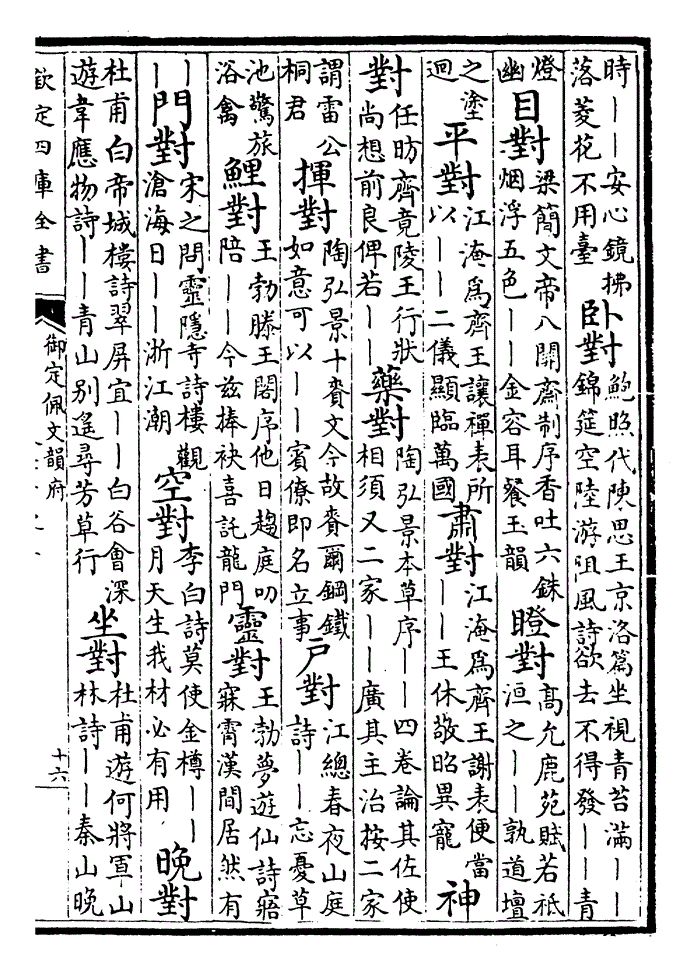 時――安心鏡拂
落菱花不用臺
臥對
鮑照代陳思王京洛篇坐視青苔滿――
錦筵空陸游阻風詩欲去不得發――青
燈
幽
目對
梁簡文帝八關齋制序香吐六銖
烟浮五色――金容耳餐玉韻
瞪對
高允鹿苑賦若祇
洹之――孰道壇
之塗
迥
平對
江淹爲齊王讓禪表所
以――二儀顯臨萬國
肅對
江淹爲齊王謝表便當
――王休敬昭異寵
神
對
任昉齊竟陵王行狀
尚想前良俾若――
藥對
陶弘景本草序――四卷論其佐使
相須又二家――廣其主治按二家
謂雷公
桐君
揮對
陶弘景十賚文今故賚爾鋼鐵
如意可以――賓僚即名立事
戶對
江總春夜山庭
詩――忘憂草
池驚旅
浴禽
鯉對
王勃滕王閣序他日趨庭叨
陪――今兹捧袂喜託龍門
靈對
王勃夢遊仙詩寤
寐霄漢間居然有
――
門對
宋之問靈隱寺詩樓觀
滄海日――浙江潮
空對
李白詩莫使金樽――
月天生我材必有用
晚對
杜甫白帝城樓詩翠屏宜――白谷會深
遊韋應物詩――青山別遙尋芳草行
坐對
杜甫遊何將軍山
林詩――秦山晚
欽定四庫全書
御定佩文韻府
十六